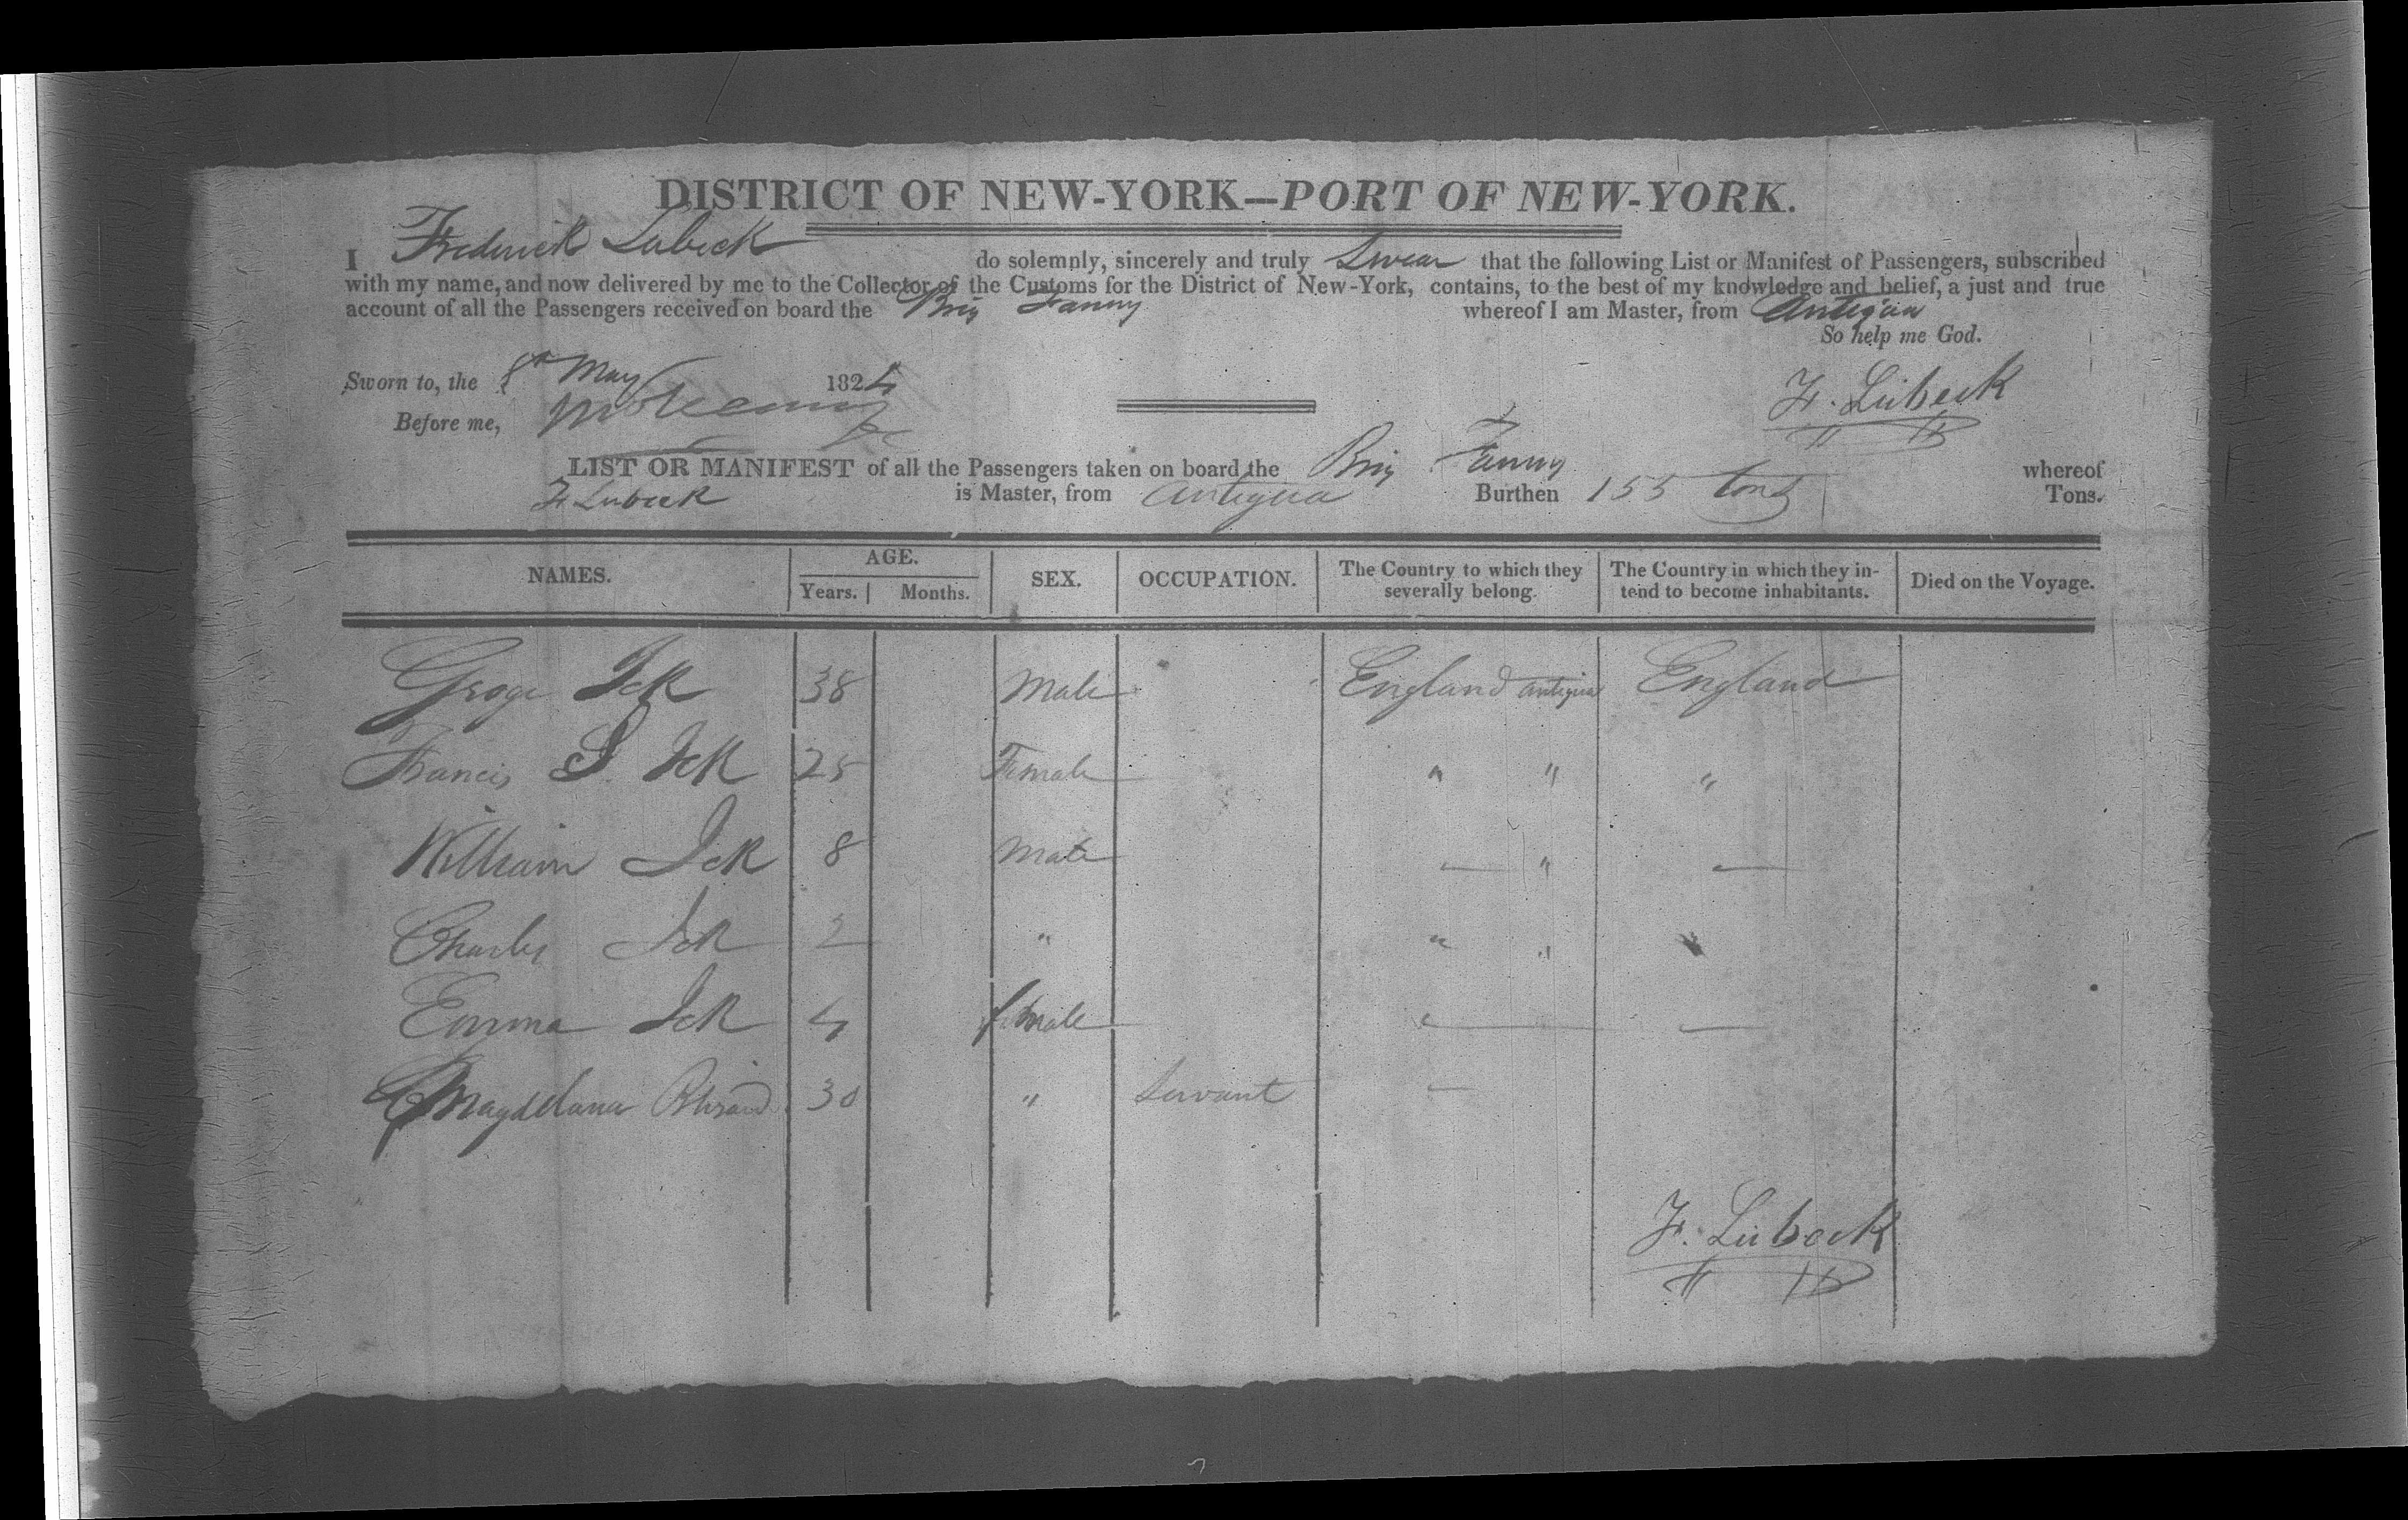 DISTRICT OF NEW-YORK—PORT OF NEW-YORK.
I Frederick Lubeck do solemnly, sincerely and truly Swear that the following List or Manifest of Passengers, subscribed
with my name, and now delivered by me to the Collector of the Customs for the District of New-York, contains, to the best of my knowledge and belief, a just and true
account of all the Passengers received on board the Brig Fanny whereof I am Master, from Antigua
So help me God.
Sworn to, the 8th May 1824
F. Lübeck
Before me,
LIST OR MANIFEST of all the Passengers taken on board the Brig Fanny whereof
F Lubeck is Master, from Antigua Burthen 155 tons Tons.
NAMES. AGE. Years. Months. SEX. OCCUPATION. The Country to which they severally belong. The Country in which they intend to become inhabitants. Died on the Voyage.
Groge Ick 38 Male England Antigua England
Francis S. Ick 28 Female " " "
William Ick 8 Male — " —
Charles Ick 2 " " " "
Emma Ick 4 female " — —
Magdelana 30 " Servant —
F. Lübeck